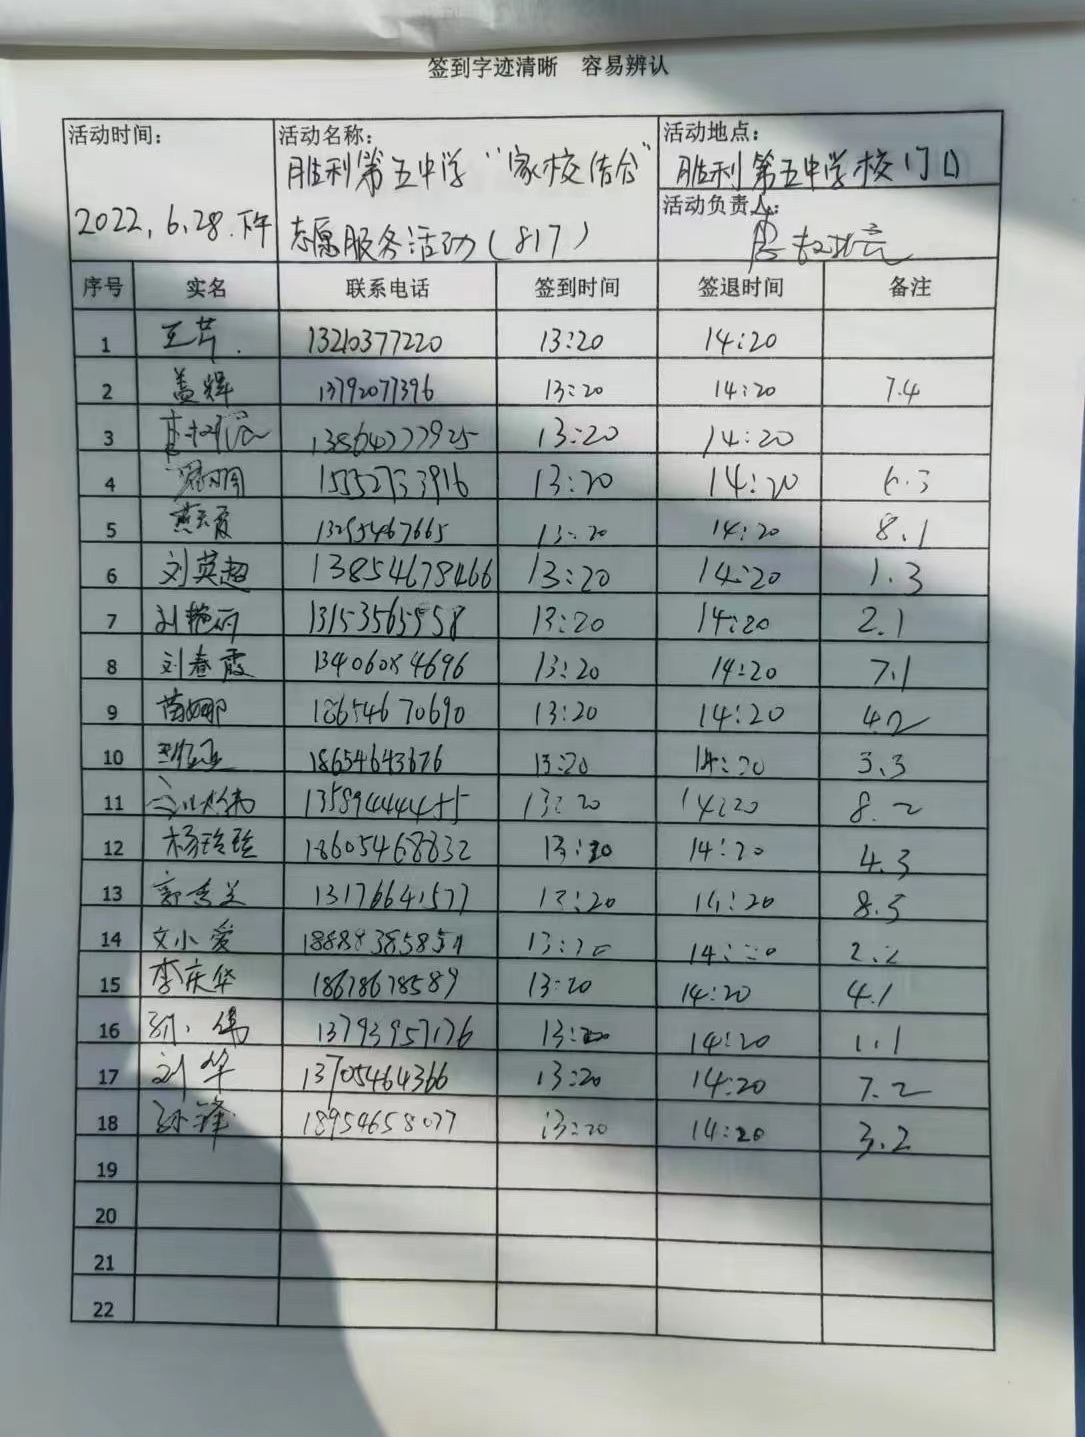 签到字迹清晰 容易辨认
活动时间: 活动名称: 活动地点:
胜利第五中学“家校结合” 胜利第五中学校门口
2022.6.28.下午 志愿服务活动(817) 活动负责人:
序号 实名 联系电话 签到时间 签退时间 备注
1 王芹. 13210377220 13:20 14:20
2 盖辉 13792077396 13:20 14:20 7.4
3 13864777925 13:20 14:20
4 15552733916 13:20 14:20 6.3
5 燕云霞 13255467665 13:20 14:20 8.1
6 刘英超 13854678466 13:20 14:20 1.3
7 刘艳丽 13153565958 13:20 14:20 2.1
8 刘春霞 13406084696 13:20 14:20 7.1
9 苗娜娜 18654670690 13:20 14:20 4.2
10 18654643676 13:20 14:20 3.3
11 13589444455 13:20 14:20 8.2
12 杨玲玲 18605468832 13:20 14:20 4.3
13 郭秀兰 13176641577 13:20 14:20 8.3
14 文小爱 13:20 14:20 2.2
15 李庆华 18678678589 13:20 14:20 4.1
16 13793957176 13:20 14:20 1.1
17 刘华 13705464366 13:20 14:20 7.2
18 孙锋 18954658077 13:20 14:20 3.2
19
20
21
22